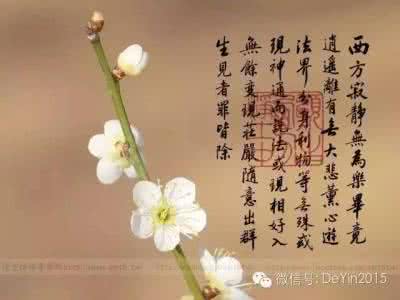 西方寂靜無為樂畢竟
逍遙離有无大悲薰心遊
法界分身利物等无殊或
現神通而說法或現相好入
無餘變現莊嚴隨意出群
生見者罪皆除
微信号: DeYin2015